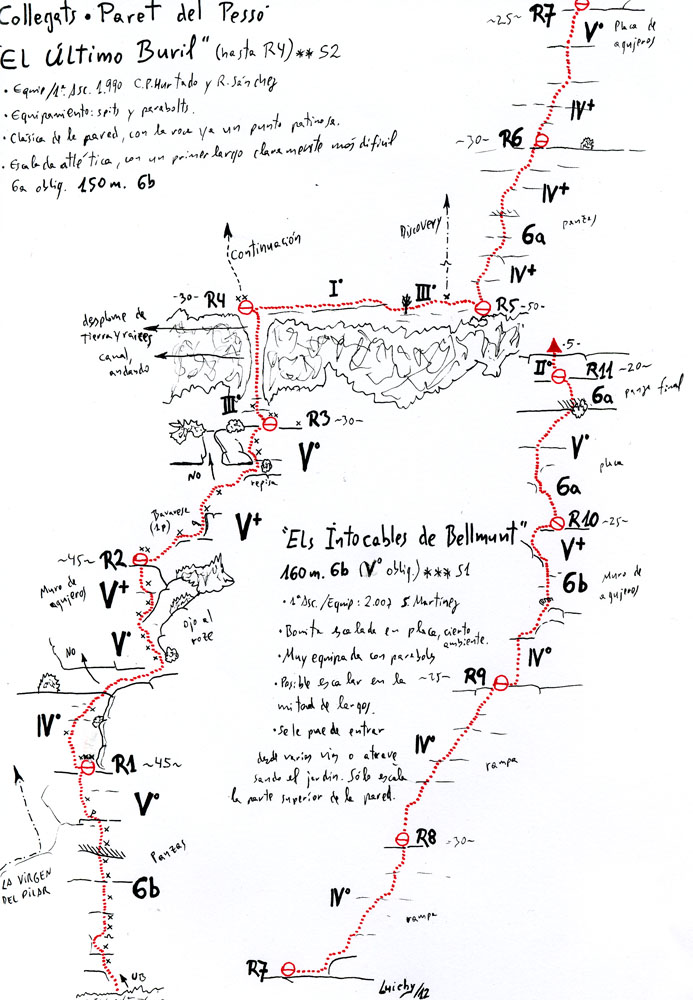 Collegats · Paret del Pessó
"El Último Buril" (hasta R4) ** S2
· Equip/1ª Asc. 1.990 C.P. Hurtado y R. Sánchez
· Equipamiento: spits y parabolts.
· Clásica de la pared, con la roca ya un punto patinosa.
· Escalada atlética, con un primer largo claramente más difícil
6a oblig. 150m. 6b
~25~ R7
V°
Placa de
agujeros
IV+
~30~ R6
IV+
panzas
6a
IV+
Continuación
Discovery
~30~ R4
I°
III°
R5 ~50~
desplome de
tierra y raices
canal,
andando
III°
R3 ~30~
V°
NO
repisa
Bavaresa
(1p)
V+
~45~ R2
Muro de
agujeros
V+
V°
Ojo al
roze
NO
IV°
R1 ~45~
V°
Panzas
LA VIRGEN
DEL PILAR
6b
UB
·5·
II°
R11 ~20~
6a
panza final
V°
placa
6a
R10 ~25~
V+
6b
Muro de
agujeros
IV°
"Els Intocables de Bellmunt"
160m. 6b (V° oblig.) *** S1
· 1ª Asc./Equip: 2.007 S. Martínez
· Bonita escalada en placa, cierto
ambiente.
· Muy equipada con parabols
· Posible escalar en la
mitad de largos.
· se le puede entrar
desde varias vías o atrave
sando el jardín. Sólo escala
la parte superior de la pared.
~25~ R9
IV°
rampa
R8 ~30~
IV°
rampa
R7
Luichy/12